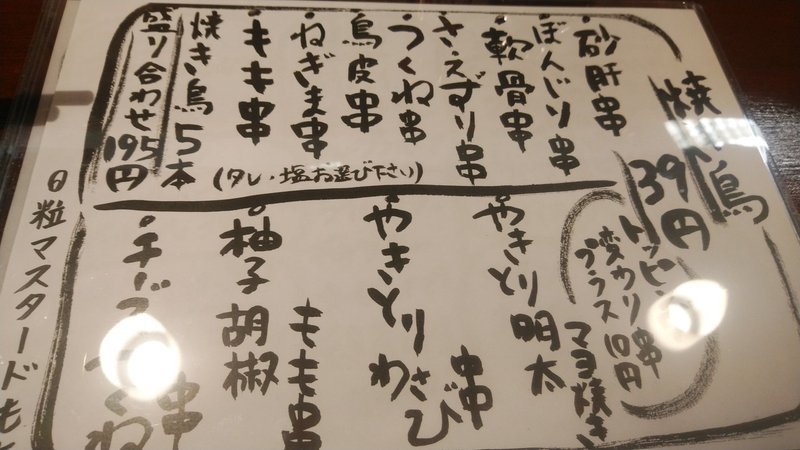 焼き鳥
39円
砂肝串
ぼんじり串
軟骨串
さえずり串
つくね串
鳥皮串
ねぎま串
もも串
焼き鳥5本
盛り合わせ195円
(タレ・塩お選び下さい)
変わり串
プラス10円
やきとり明太
マヨ焼き
やきとりわさび
串
柚子胡椒
もも串
チーズつくね
串
粒マスタードも